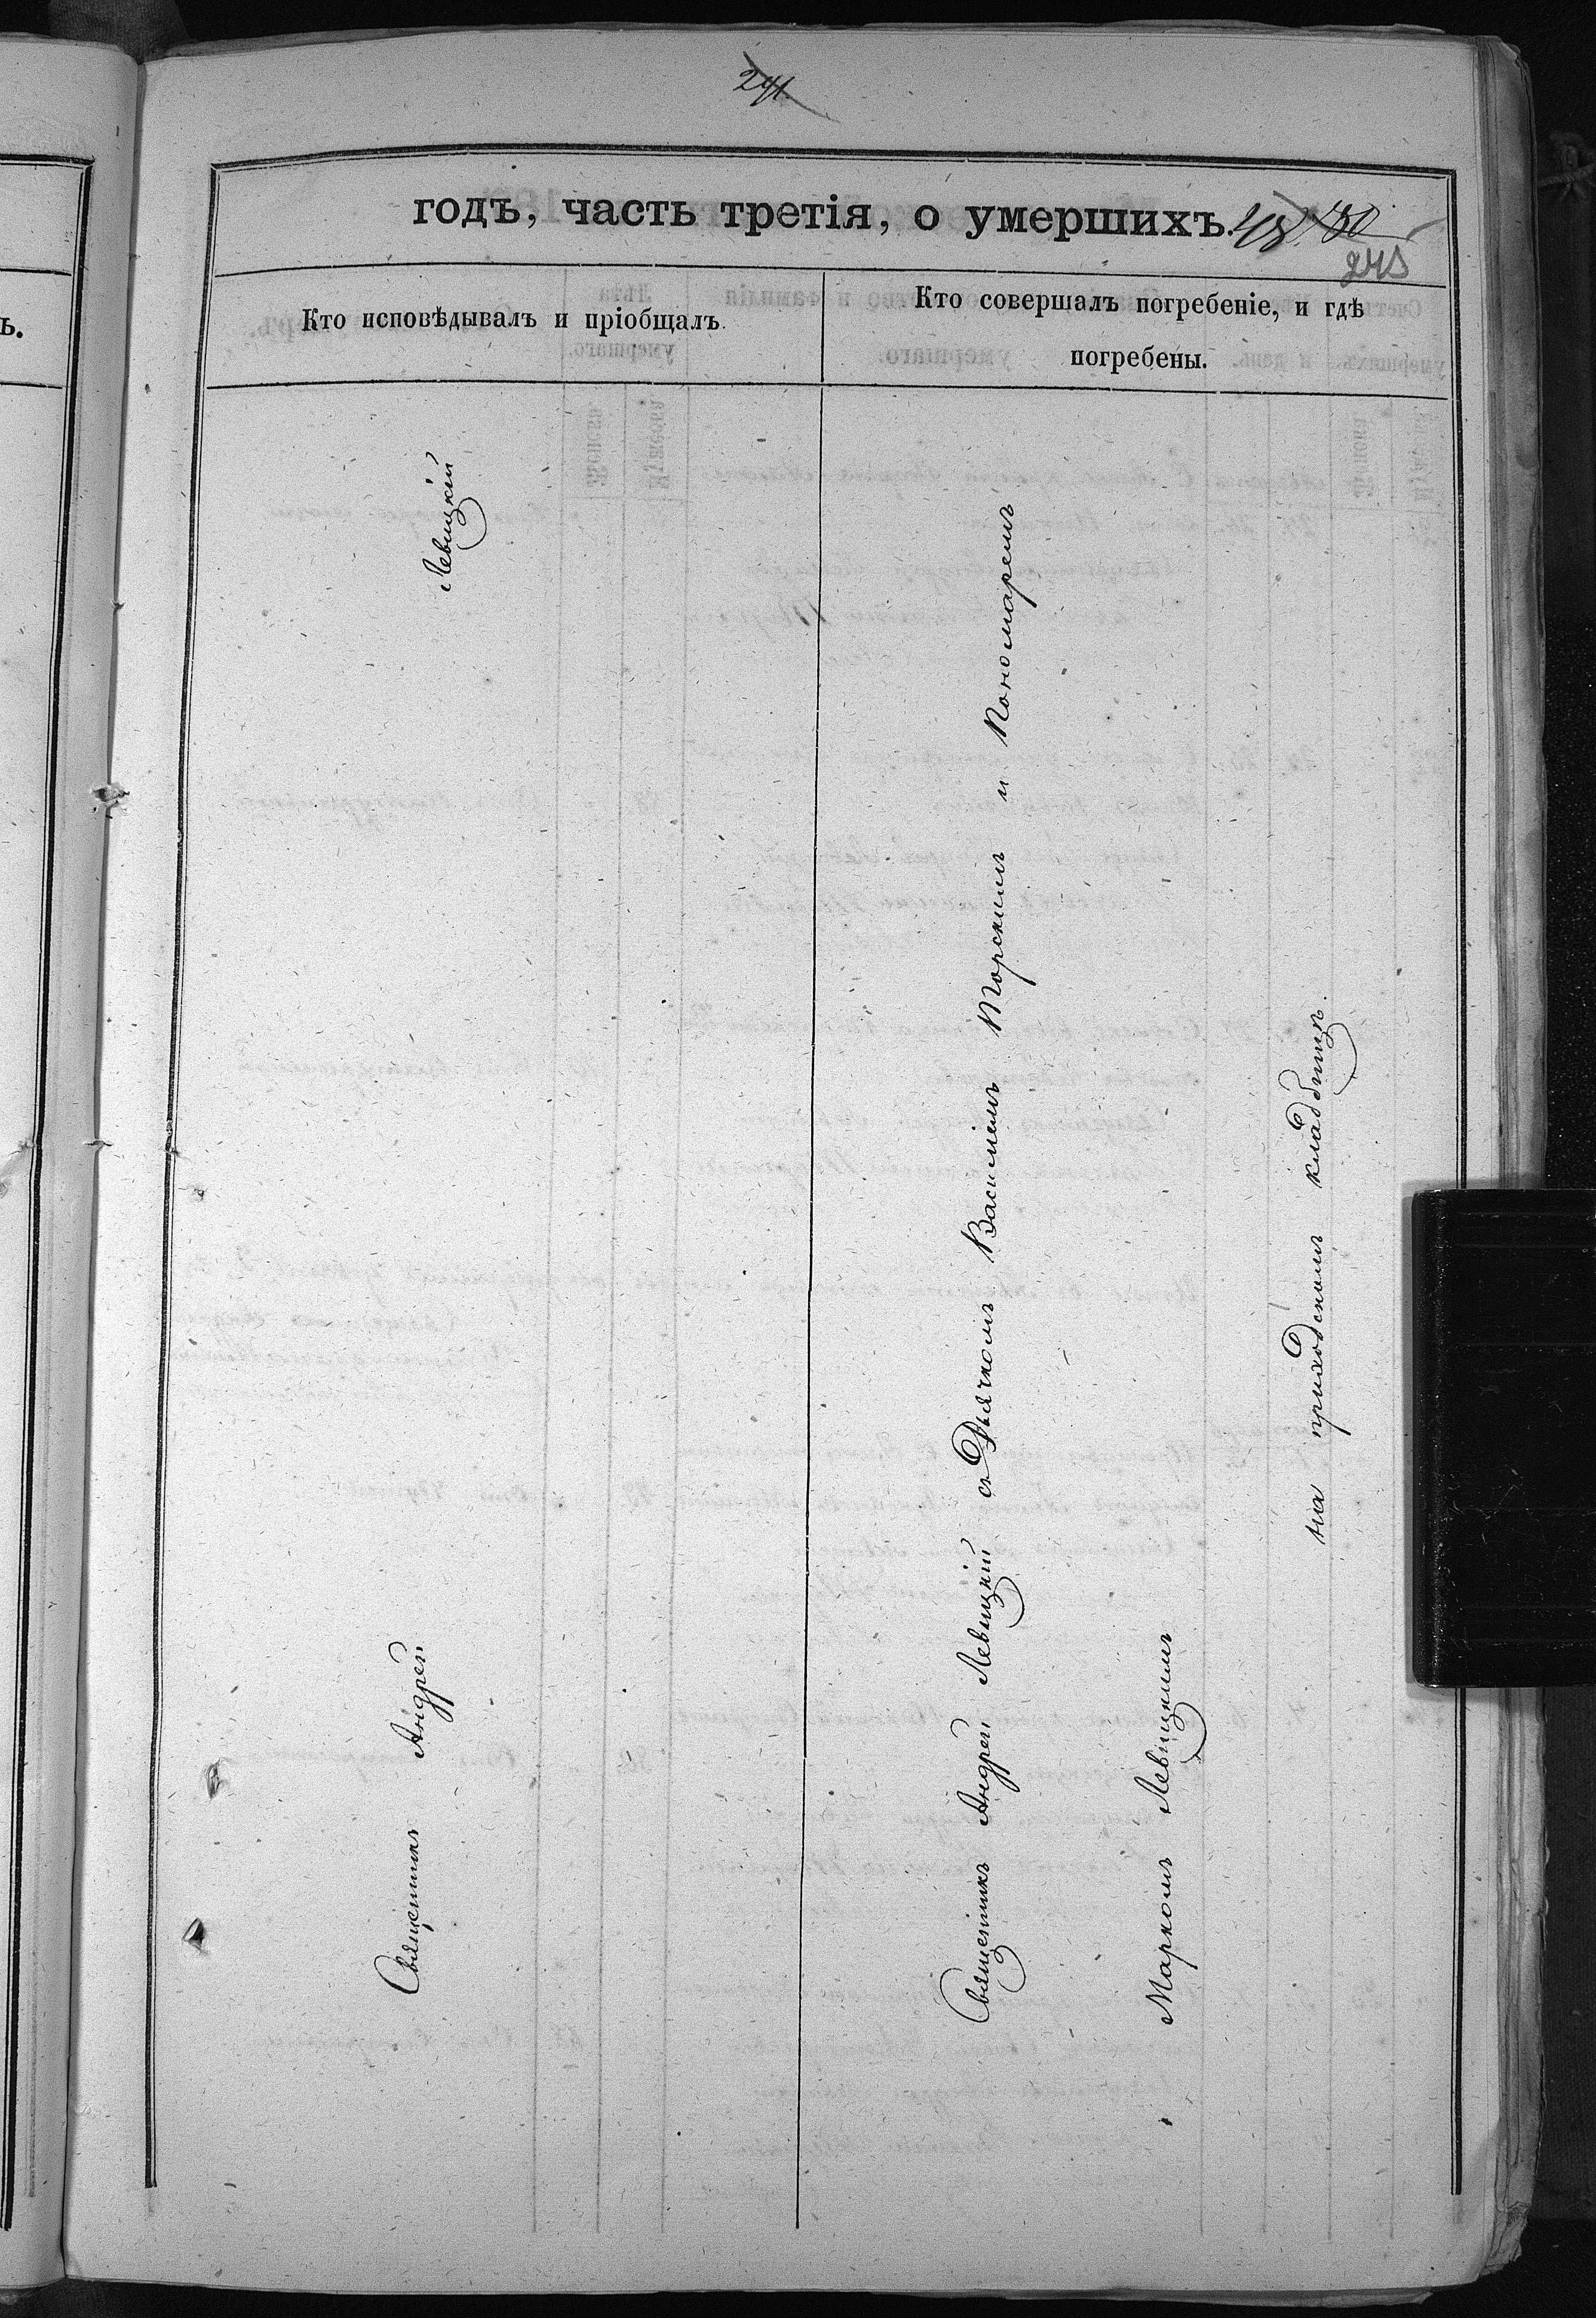 241.
годъ, часть третія, о умершихъ.
245
Кто исповѣдывалъ и пріобщалъ.
Кто совершалъ погребеніе, и гдѣ
погребены.
Священникъ Андрей Левицкій
Священникъ Андрей Левицкій съ Дьячкомъ Василіемъ Торскимъ и Пономаремъ
Маркомъ Левицкимъ
на приходскомъ кладбищѣ.